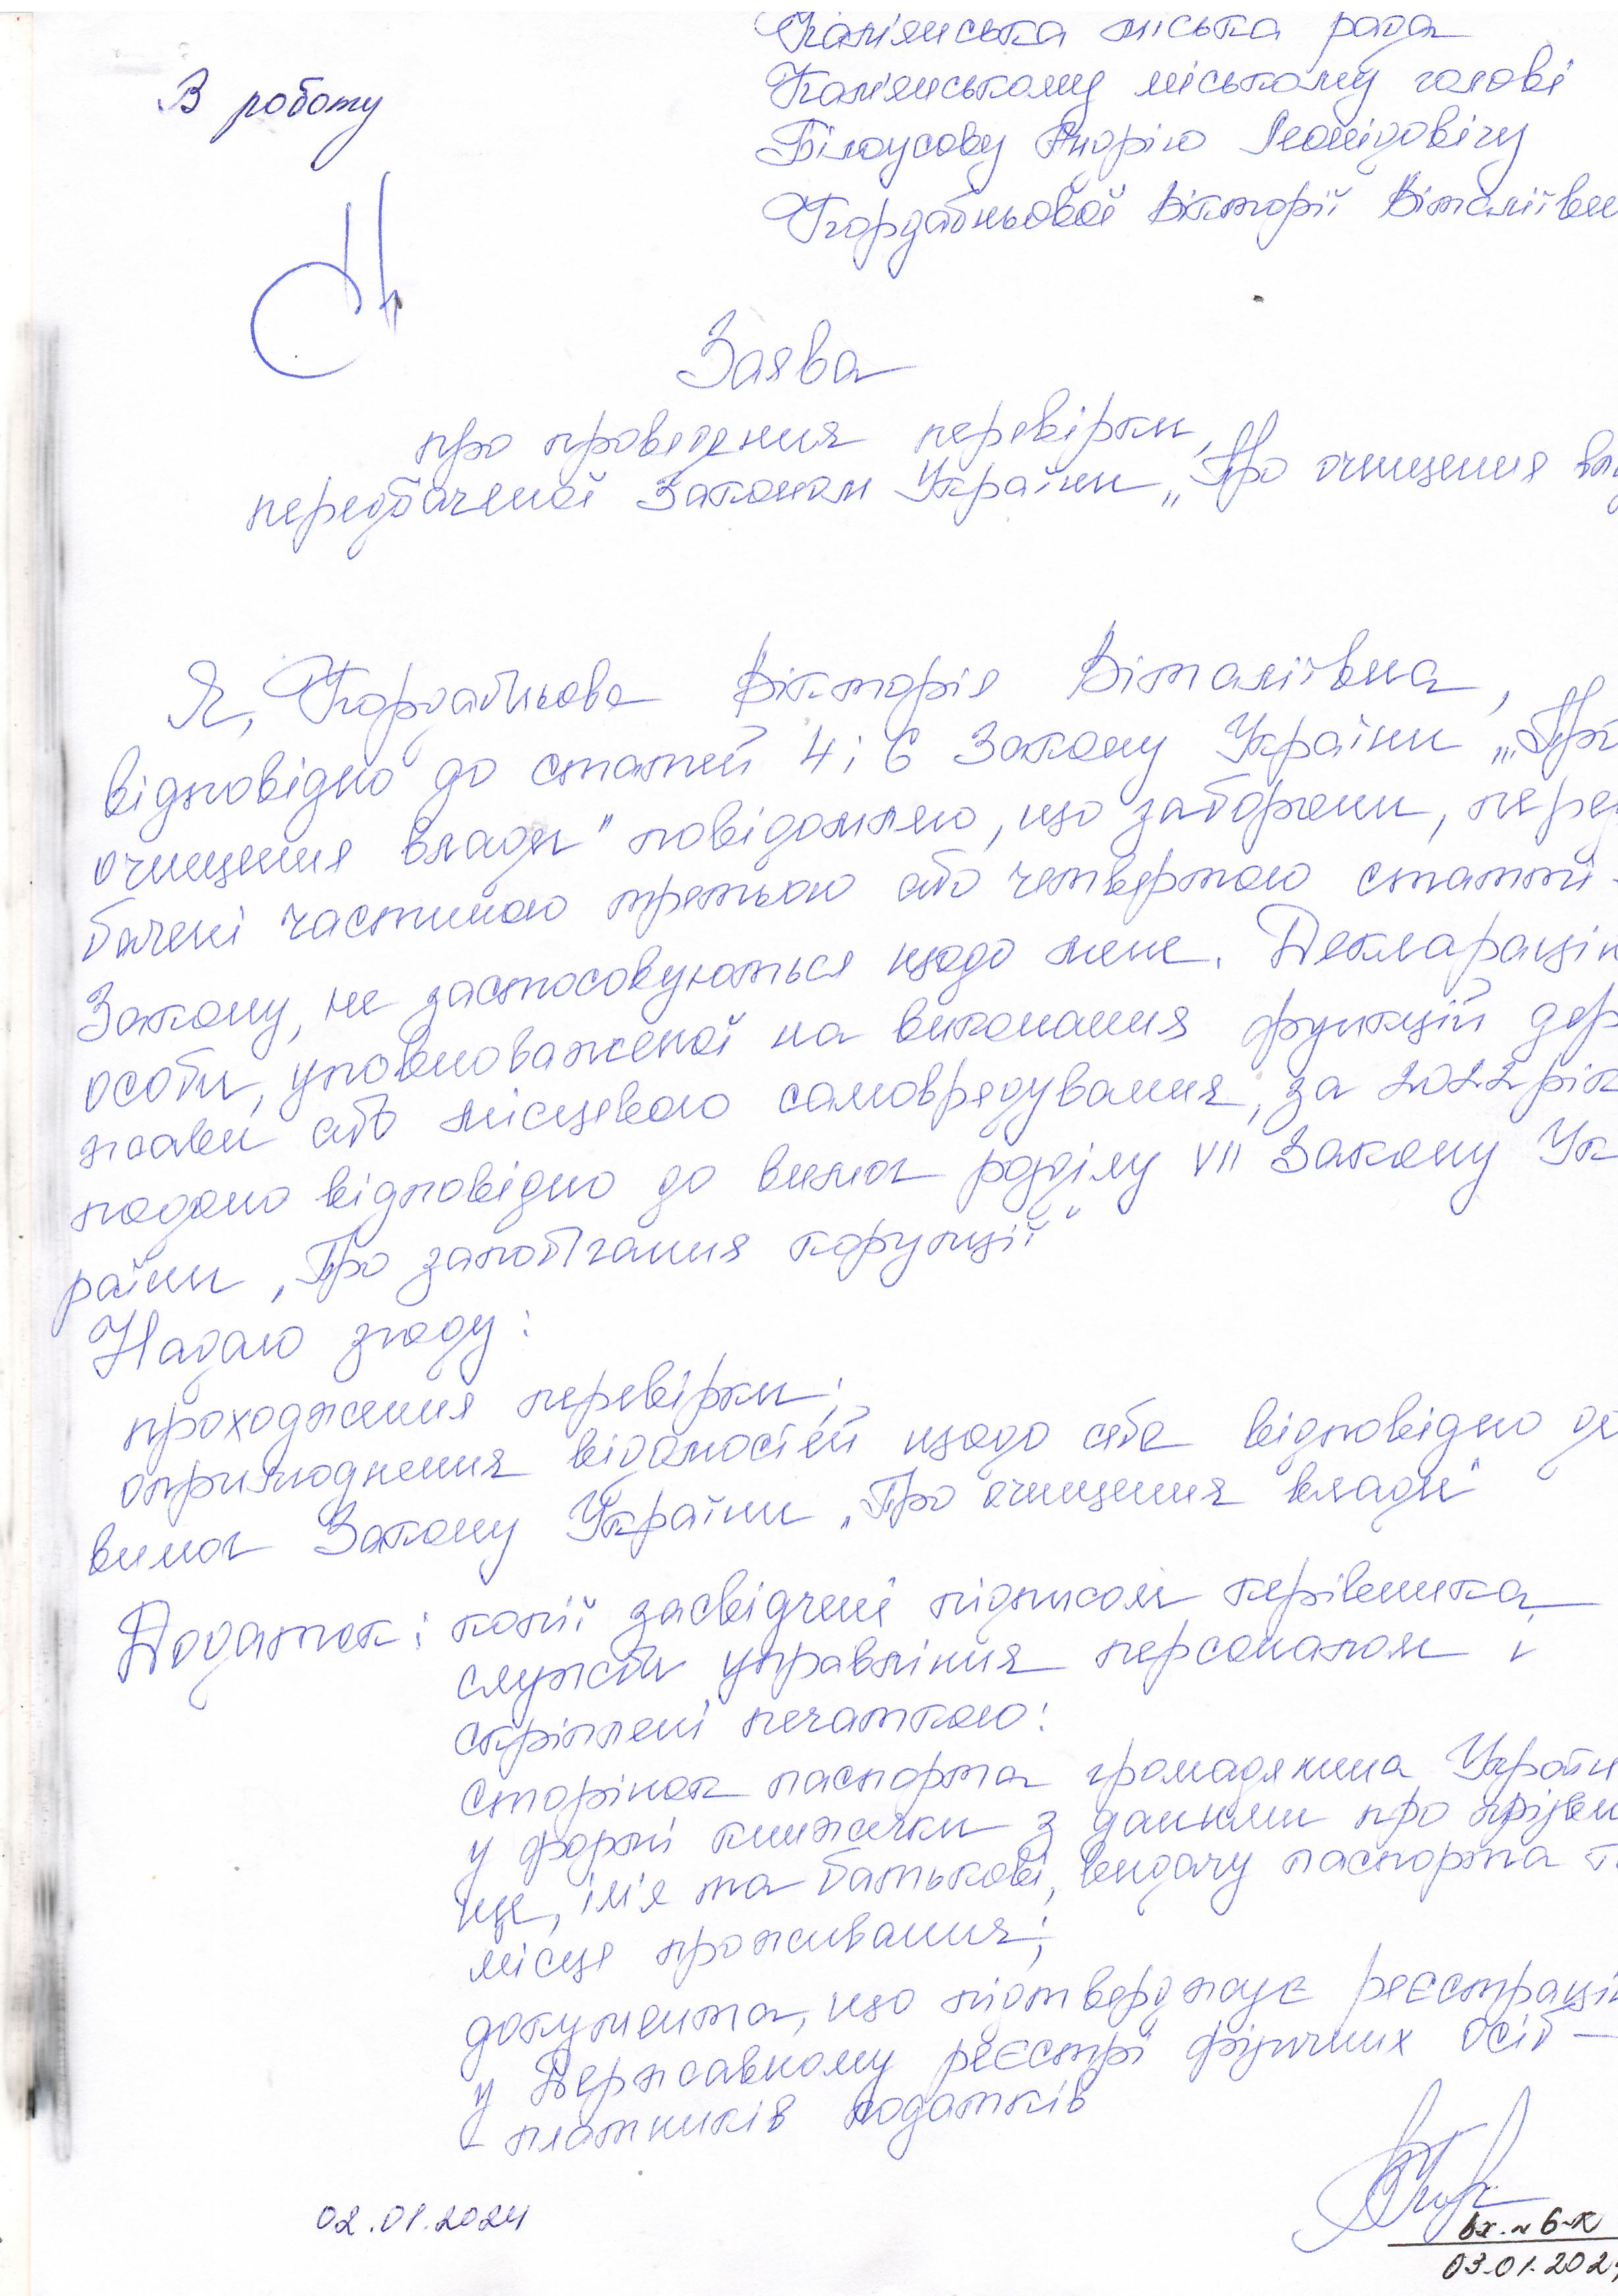 Кам'янська міська рада
В роботу
Кам'янському міському голові
Білоусову Андрію Леонідовічу
Кордабньової Вікторії Віталіївн
Заява
про проведення перевірки,
передбаченої Законом України „Про очищення вл
Я, Кордабньова Вікторія Віталіївна,
відповідно до статей 4 і 6 Закону України „Про
очищення влади" повідомляю, що заборони, перед
бачені частиною третьою або четвертою статті
Закону, не застосовуються щодо мене. Декларацію
особи, уповноваженої на виконання функцій дер
жави або місцевого самоврядування, за 2022 рік
подано відповідно до вимог розділу VII Закону Ук
раїни „Про запобігання корупції"
Надаю згоду:
проходження перевірки;
оприлюднення відомостей щодо себе відповідно до
вимог Закону України „Про очищення влади"
Додаток: копії засвідчені підписом керівника
служби управління персоналом і
скріплені печаткою:
сторінок паспорта громадянина України
у формі книжечки з даними про прізви
ще, ім'я та батькові, видачу паспорта т
місце проживання;
документа, що підтверджує реєстрацію
у Державному реєстрі фізичних осіб —
- платників податків
02.01.2024
вх. № 6-К
03.01.202